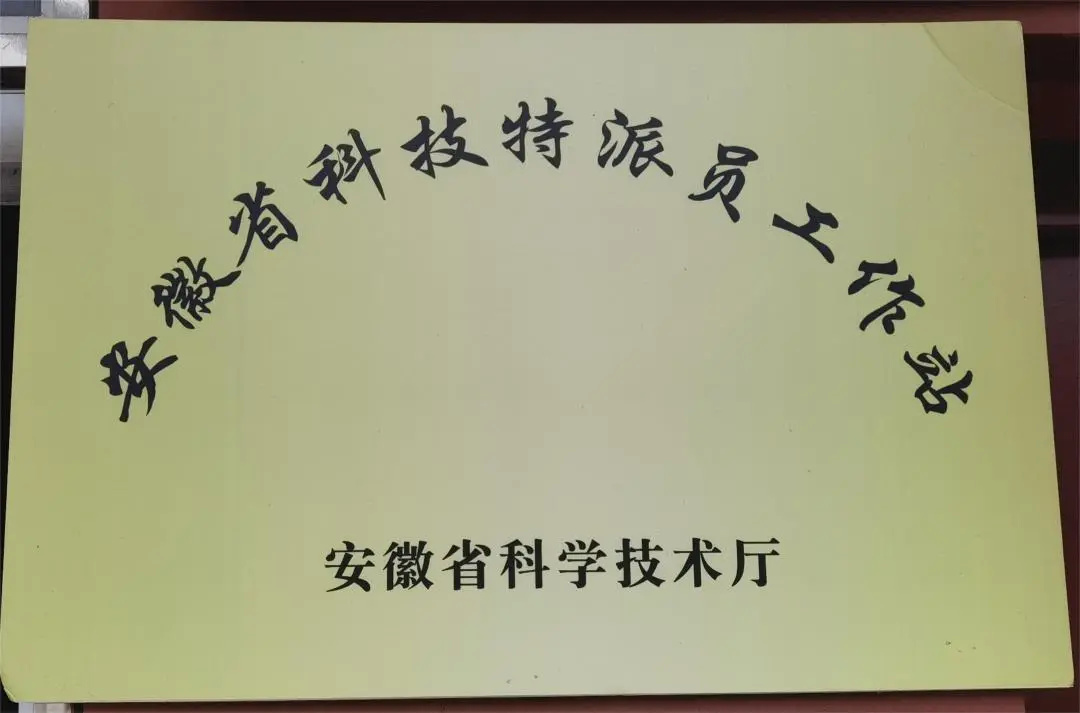 安徽省科技特派员工作站
安徽省科学技术厅